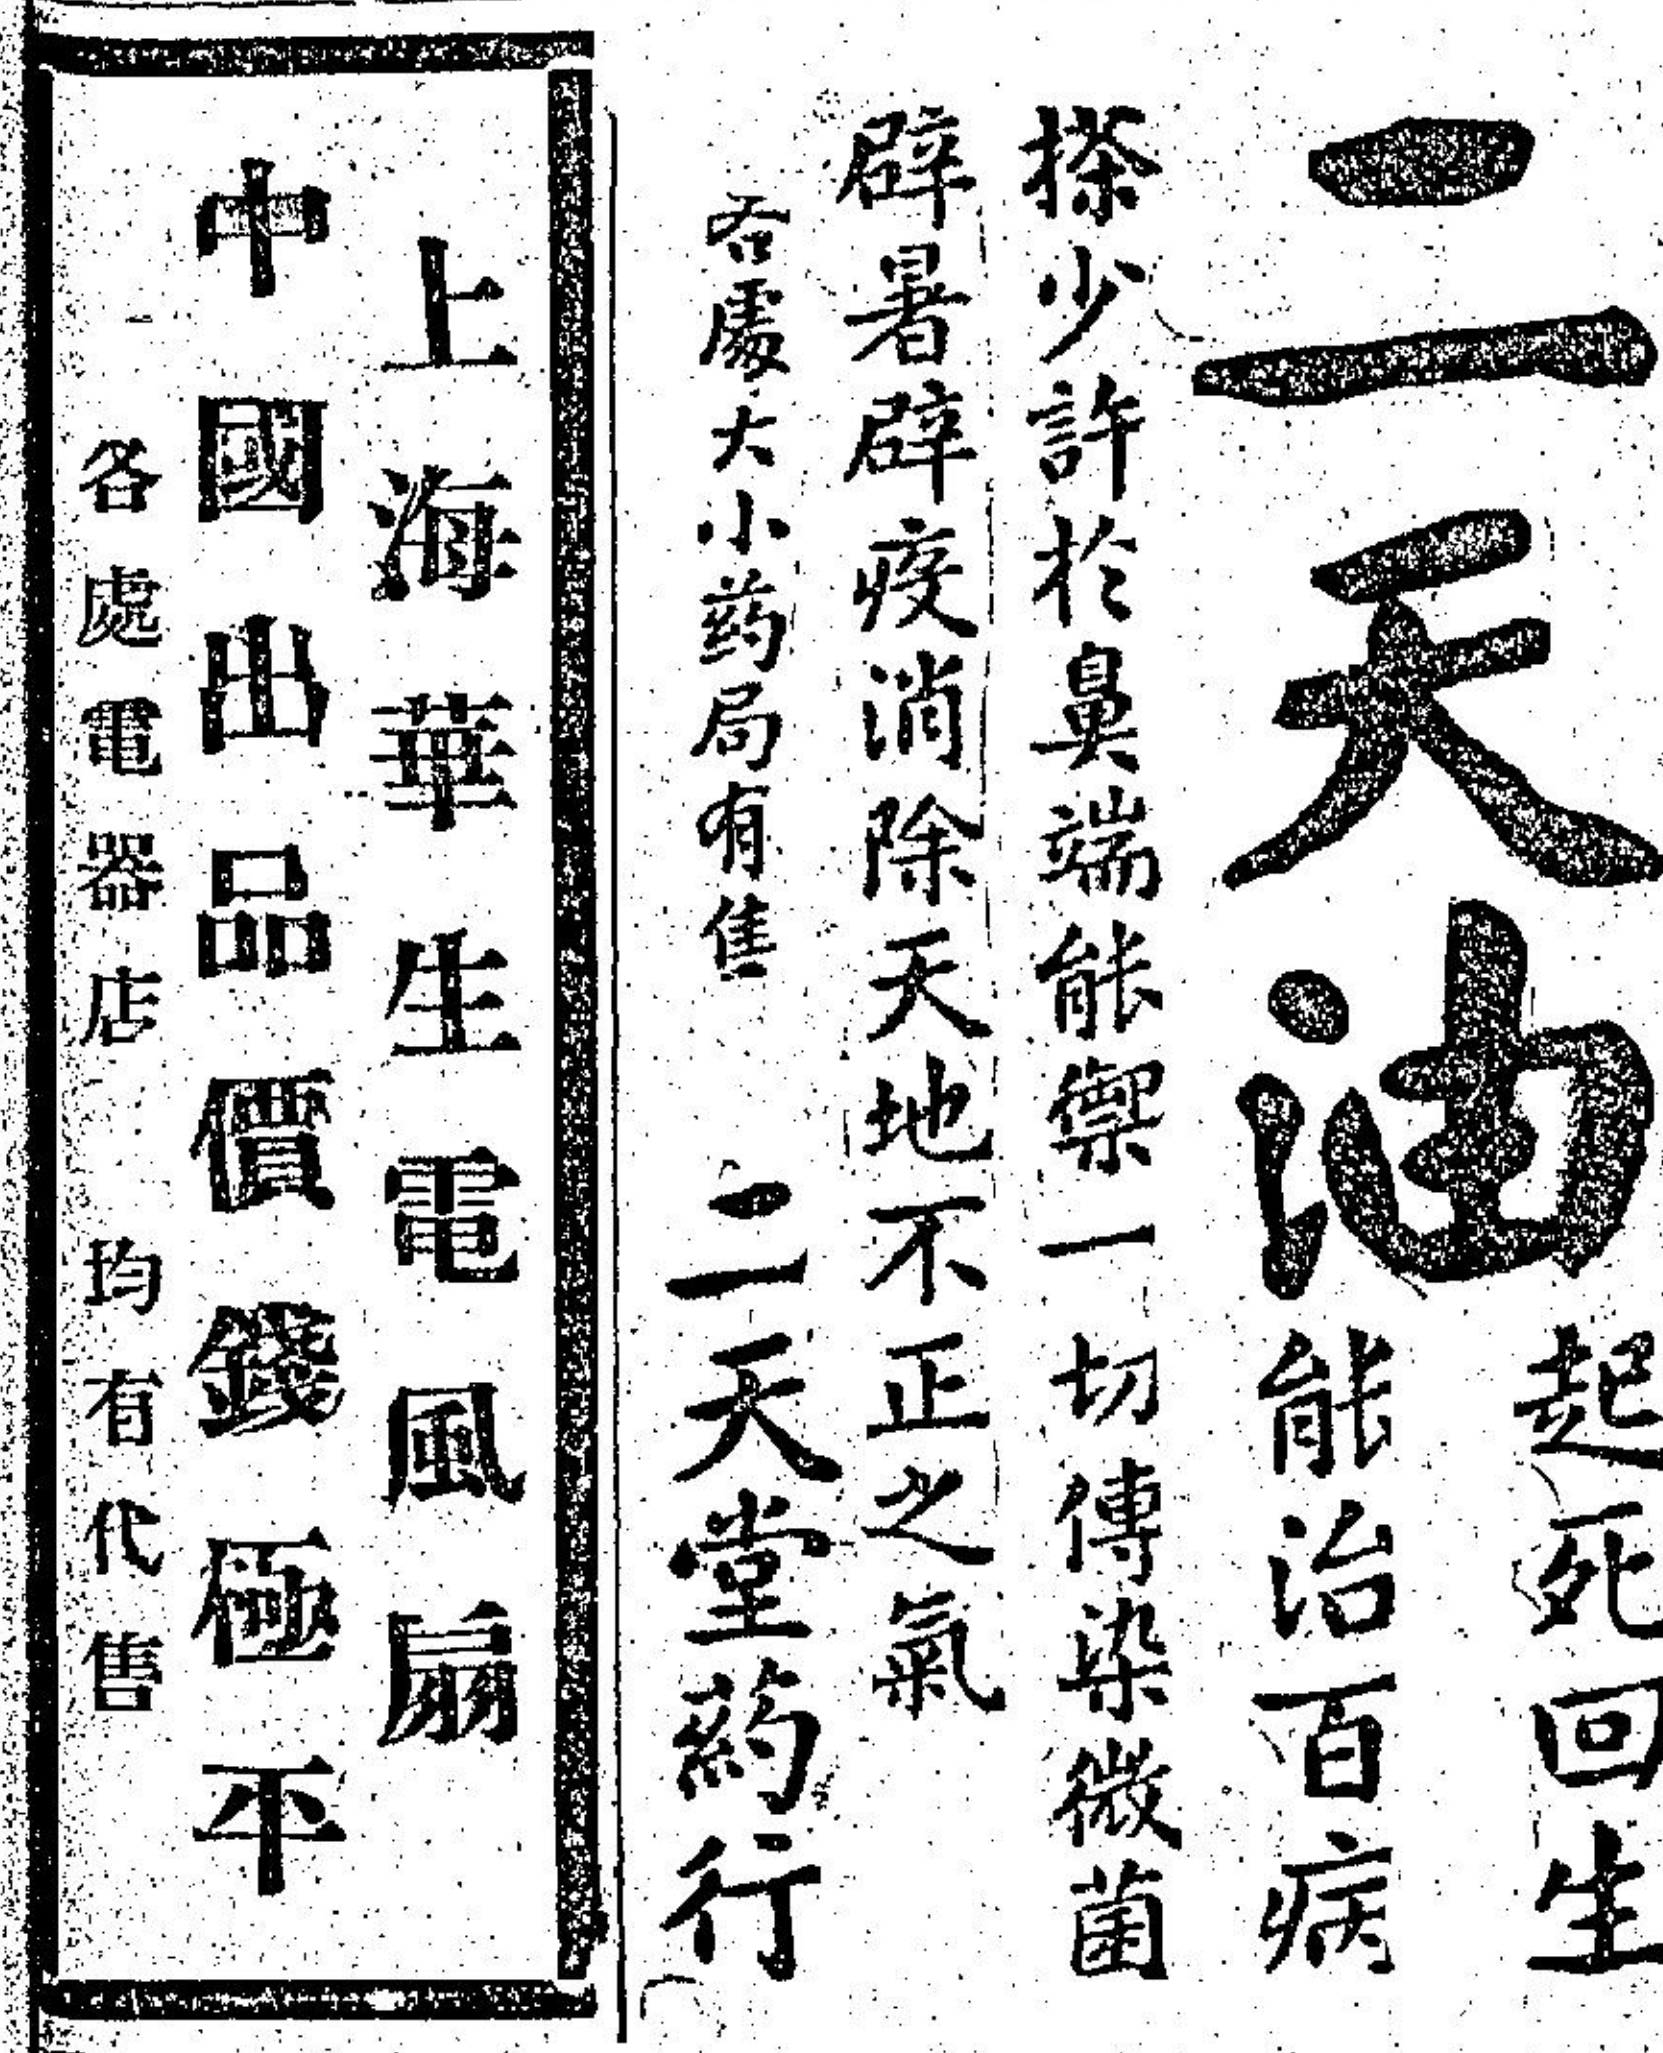 二天油
起死回生
能治百病
搽少許於鼻端能禦一切傳染微菌
辟暑辟疫消除天地不正之氣
各處大小葯局有售
二天堂葯行
上海華生電風扇
中國出品價錢極平
各處電器店 均有代售